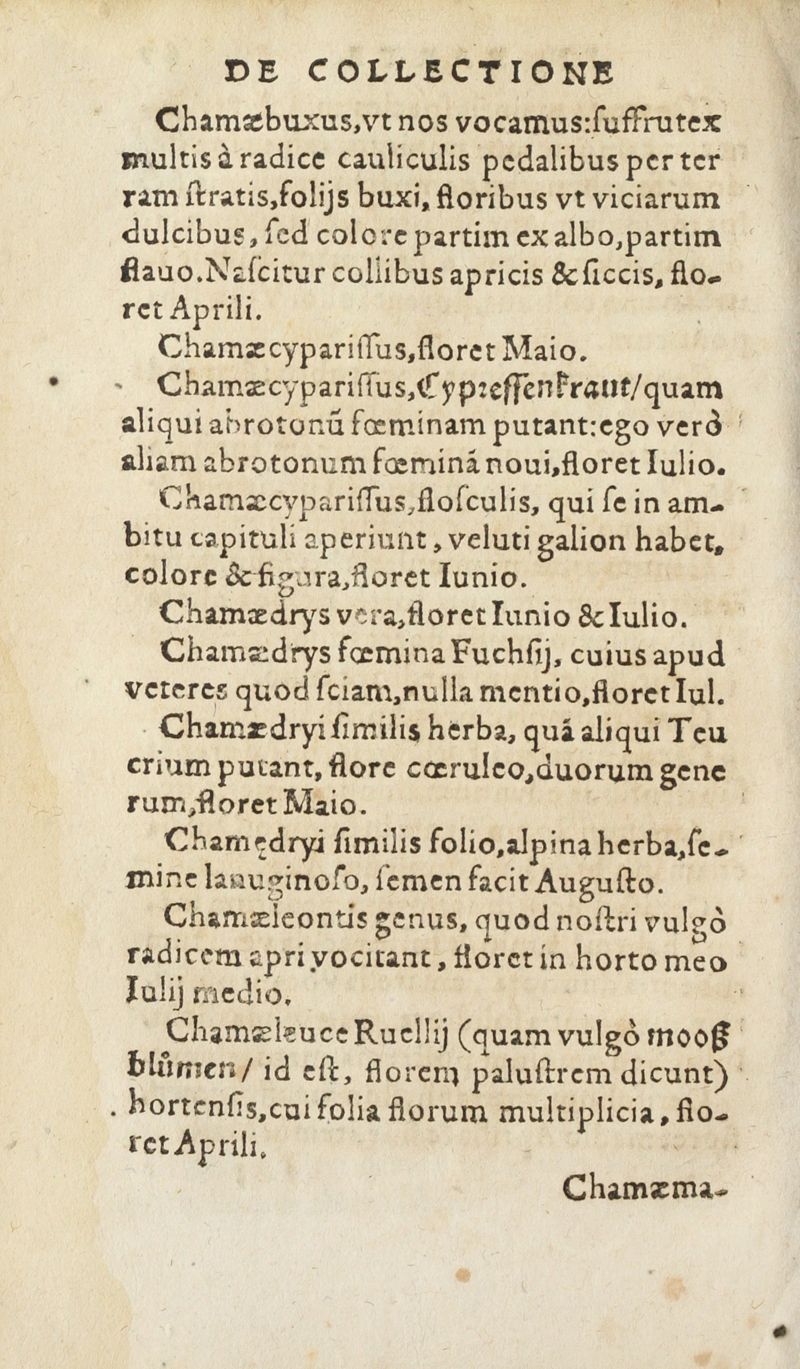 DE COLLECTIONE
Chamæbuxus,vt nos vocamus:ſuffrutex
multis à radice cauliculis pedalibus per ter
ram ſtratis,folijs buxi, floribus vt viciarum
dulcibus, ſed colore partim ex albo,partim
flauo.Naſcitur collibus apricis & ſiccis, flo-
ret Aprili.
Chamæcypariſſus,floret Maio.
Chamæcypariſſus,Cypreſſenkraut/quam
aliqui abrotonũ fœminam putant:ego verò
aliam abrotonum fœminā noui,floret Iulio.
Chamæcypariſſus,floſculis, qui ſe in am-
bitu capituli aperiunt, veluti galion habet,
colore & figura,floret Iunio.
Chamædrys vera,floret Iunio & Iulio.
Chamædrys fœmina Fuchſij, cuius apud
veteres quod ſciam,nulla mentio,floret Iul.
Chamædryi ſimilis herba, quā aliqui Teu
crium putant, flore cœruleo,duorum gene
rum,floret Maio.
Chamędryi ſimilis folio,alpina herba,ſe-
mine lanuginoſo, ſemen facit Auguſto.
Chamæleontis genus, quod noſtri vulgò
radicem apri vocitant, floret in horto meo
Iulij medio.
Chamæleuce Ruellij (quam vulgò mooß
blůmen/ id eſt, florem paluſtrem dicunt)
hortenſis,cui folia florum multiplicia, flo-
ret Aprili.
Chamæma-